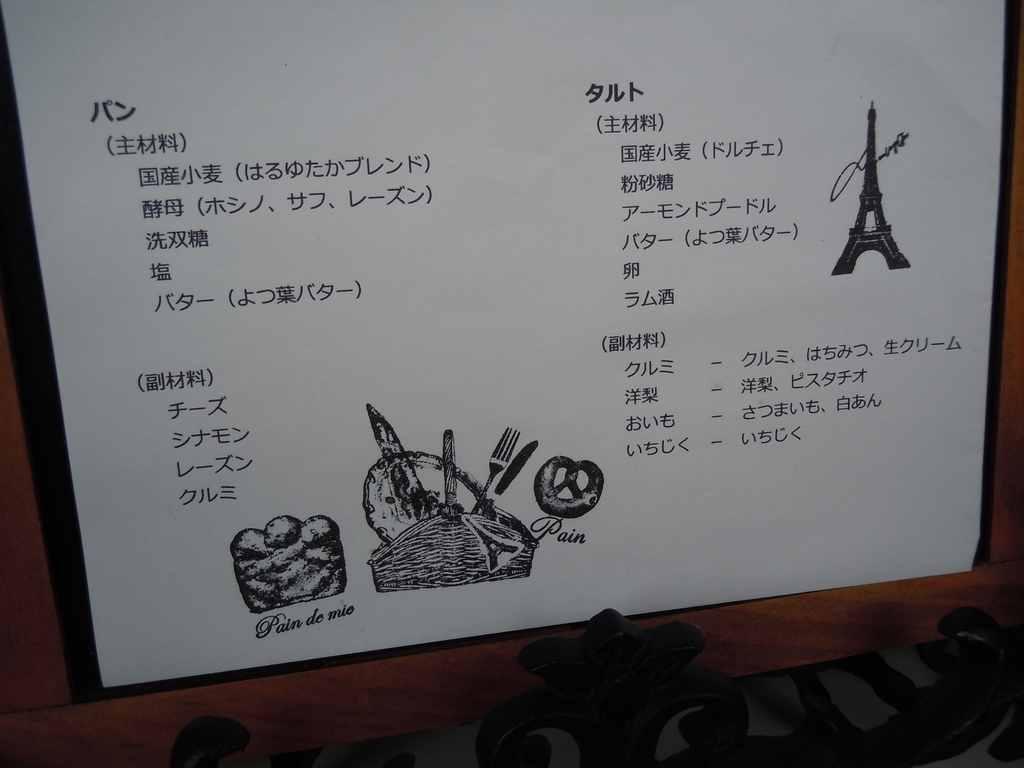 パン
（主材料）
国産小麦（はるゆたかブレンド）
酵母（ホシノ、サフ、レーズン）
洗双糖
塩
バター（よつ葉バター）
（副材料）
チーズ
シナモン
レーズン
クルミ
Pain de mie
Pain
タルト
（主材料）
国産小麦（ドルチェ）
粉砂糖
アーモンドプードル
バター（よつ葉バター）
卵
ラム酒
（副材料）
クルミ － クルミ、はちみつ、生クリーム
洋梨 － 洋梨、ピスタチオ
おいも － さつまいも、白あん
いちじく － いちじく